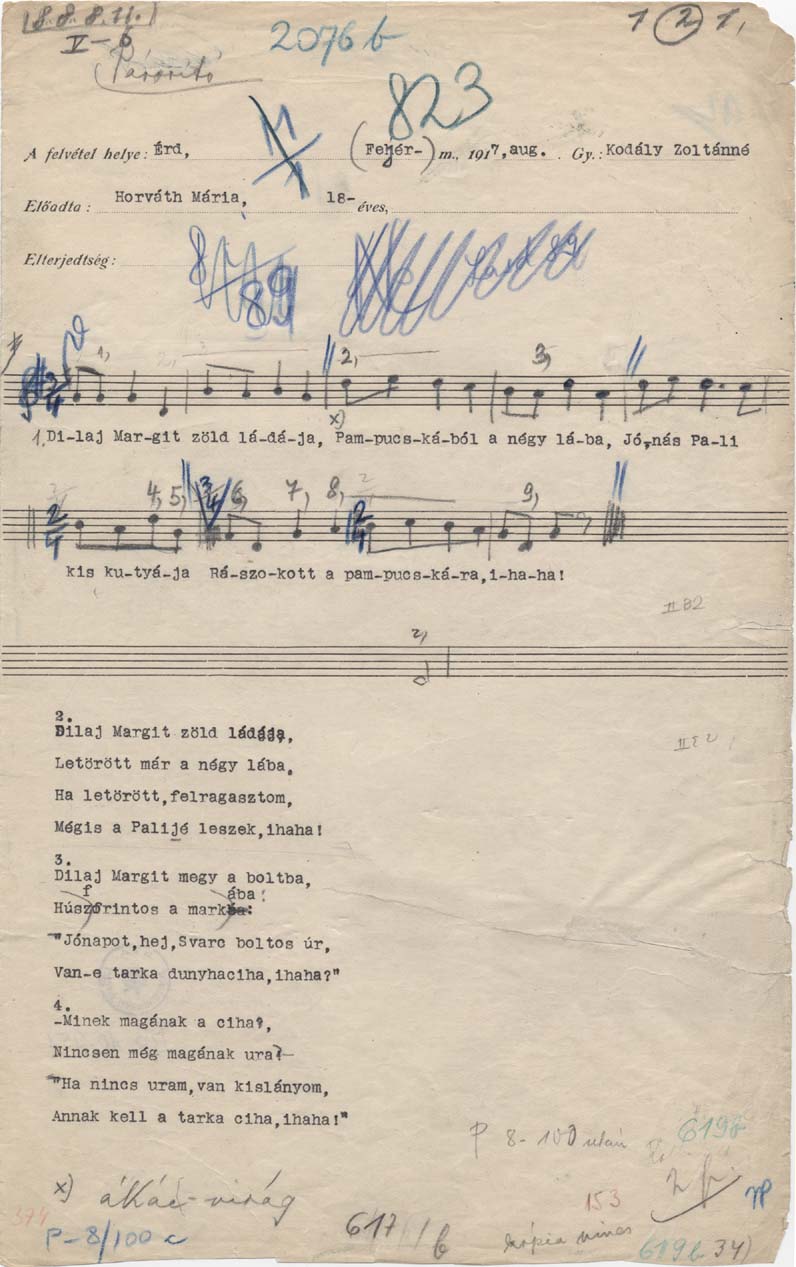 (8.8.8.11.)
V-6
Párosító
2076 b
1 2 1,
823
A felvétel helye: Érd, (Fehér-) m., 1917, aug. Gy.: Kodály Zoltánné
Előadta: Horváth Mária, 18- éves,
Elterjedtség:
89
1, 2, 3 2, 3,
2/4
x)
1. Di-laj Mar-git zöld lá-dá-ja, Pam-pucs-ká-ból a négy lá-ba, Jó,nás Pa-li
4, 5, 6, 7, 8, 9,
2/4 3/4 2/4
kis ku-tyá-ja Rá-szo-kott a pam-pucs-ká-ra,i-ha-ha!
2,
2.
Dilaj Margit zöld ládája,
Letörött már a négy lába,
Ha letörött,felragasztom,
Mégis a Palijé leszek,ihaha!
3.
Dilaj Margit megy a boltba,
Húszforintos a markába:
"Jónapot,hej,Svarc boltos úr,
Van-e tarka dunyhaciha,ihaha?"
4.
-Minek magának a ciha?,
Nincsen még magának ura?-
"Ha nincs uram,van kislányom,
Annak kell a tarka ciha,ihaha!"
P 8-100 után
619b
x) ákác-virág
153
374
P-8/100 c
617/b
kópia nincs
619b 34)